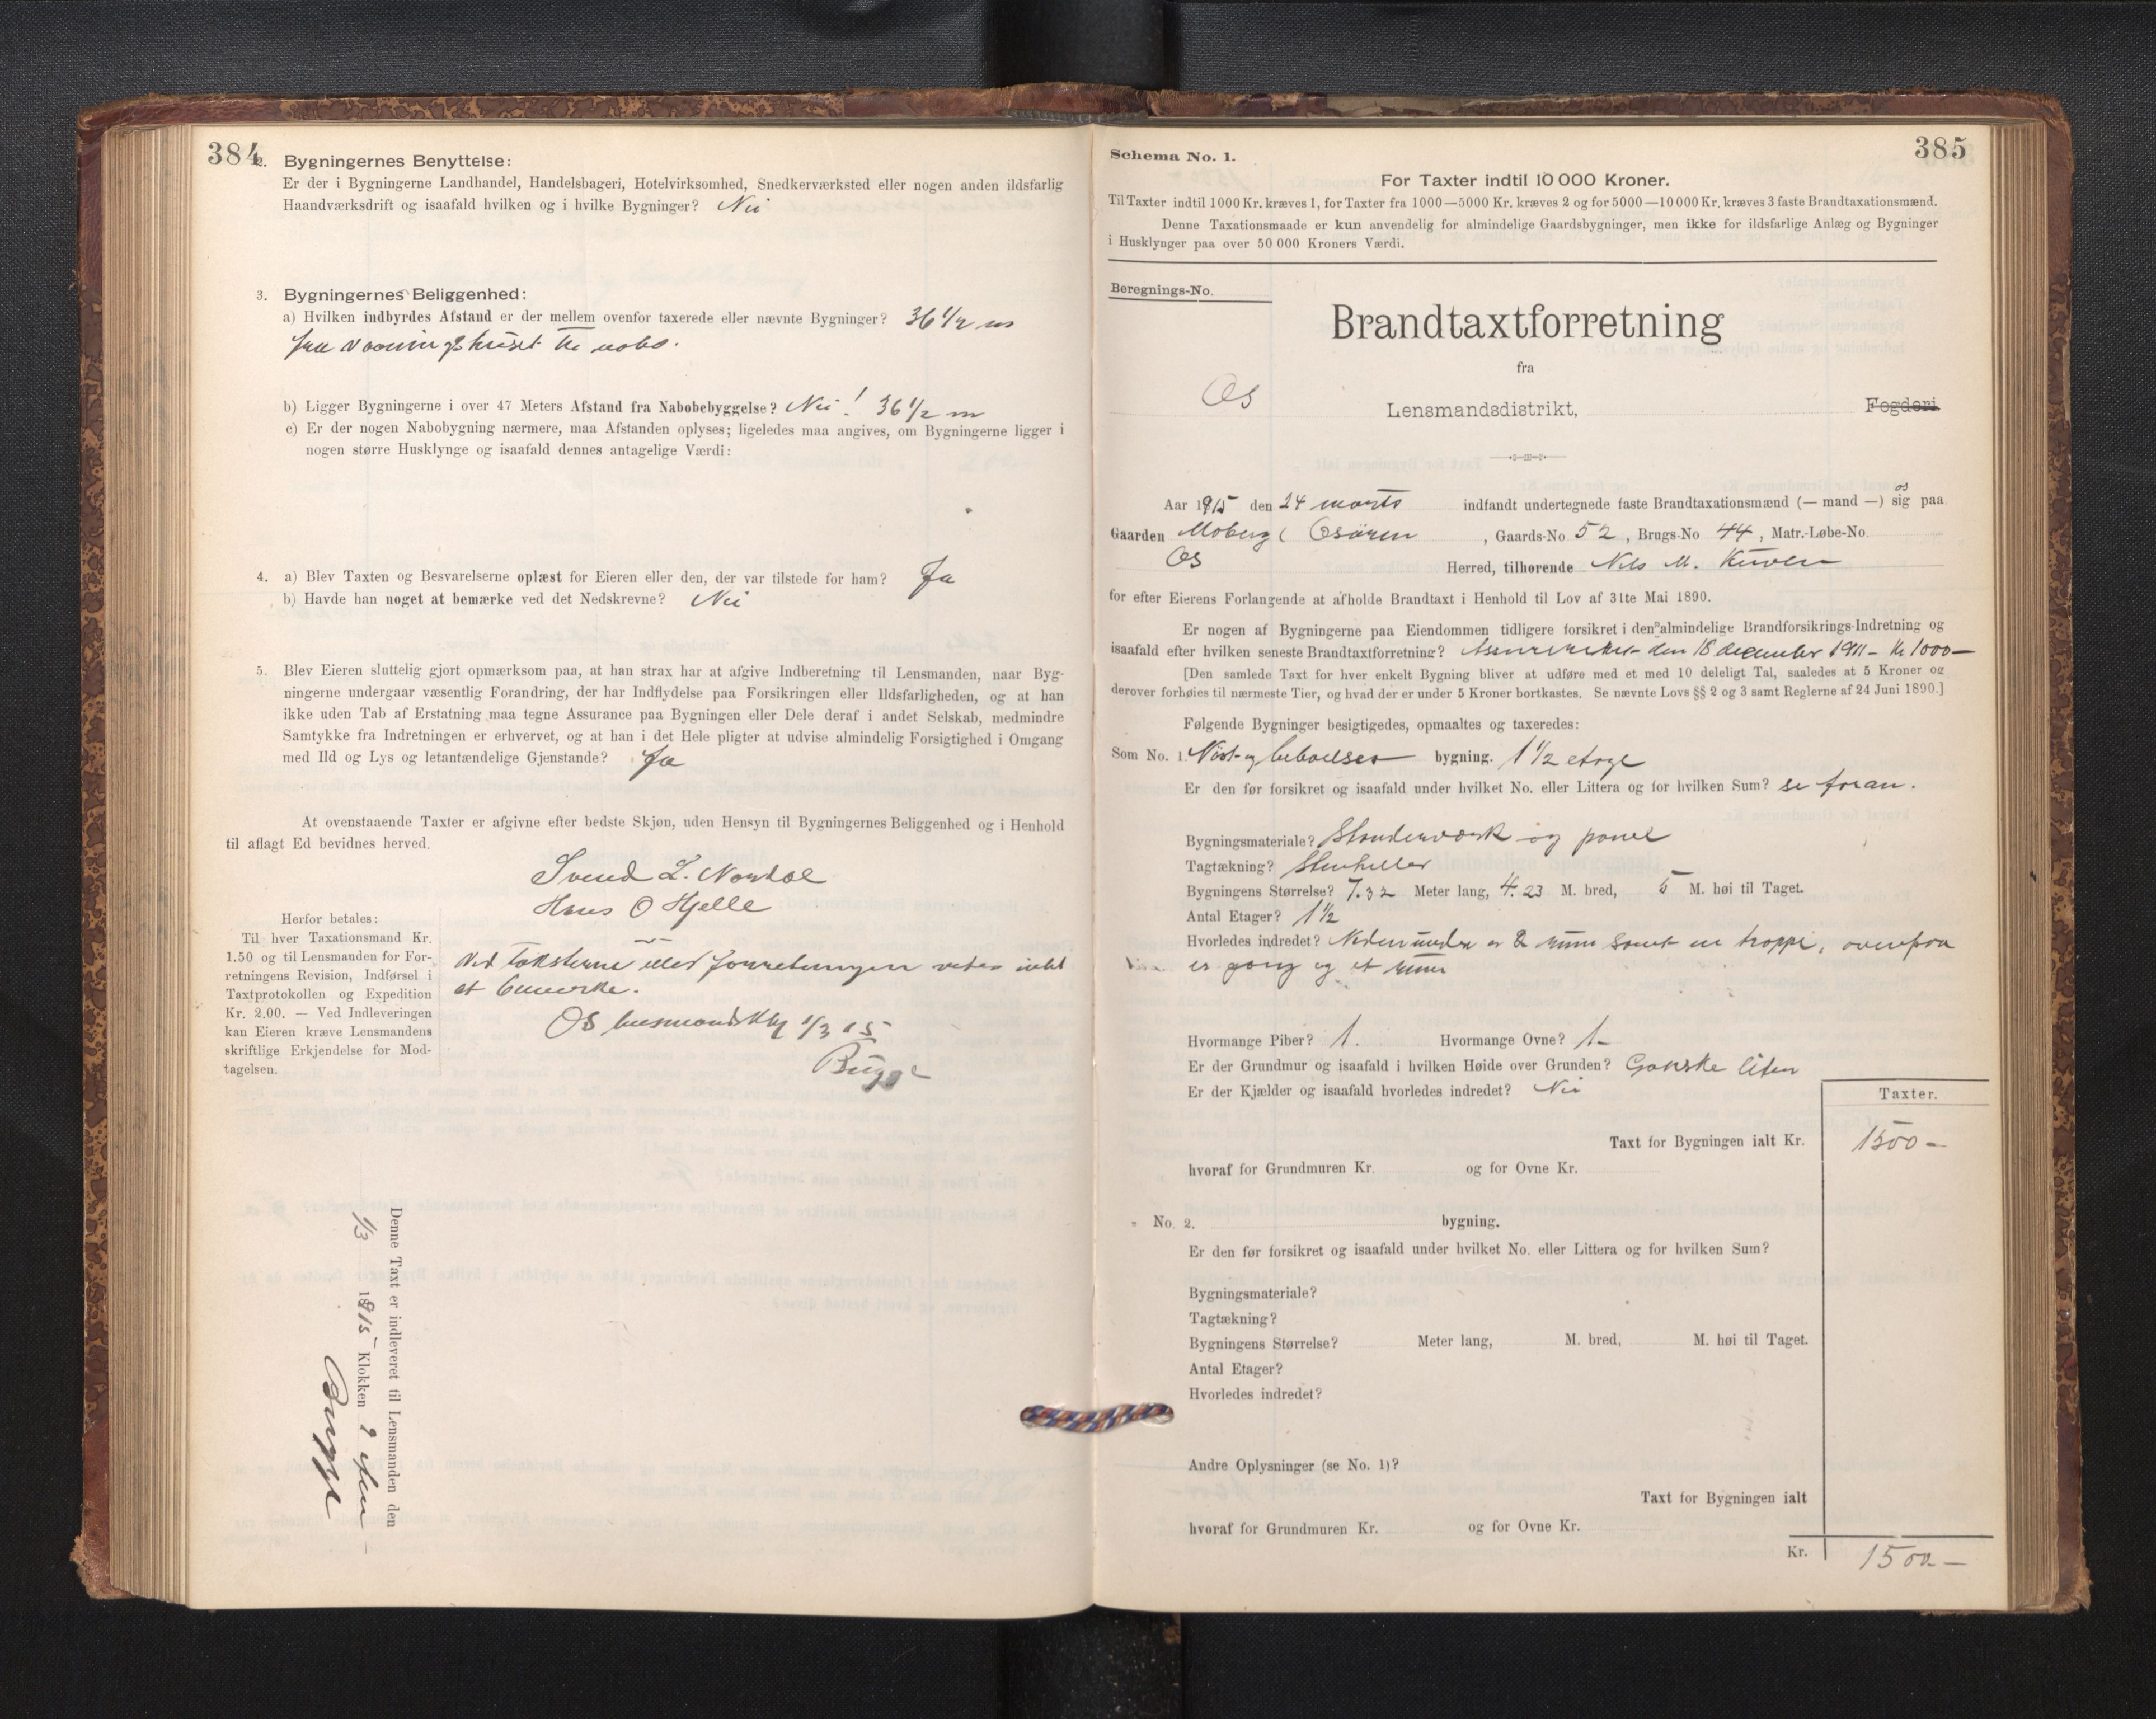 384
2. Bygningernes Benyttelse:
Er der i Bygningerne Landhandel, Handelsbageri, Hotelvirksomhed, Snedkerværksted eller nogen anden ildsfarlig
Haandværksdrift og isaafald hvilken og i hvilke Bygninger? Nei
3. Bygningernes Beliggenhed:
a) Hvilken indbyrdes Afstand er der mellem ovenfor taxerede eller nævnte Bygninger? 36 1/2 m
fra vaaningshuset til nabo.
b) Ligger Bygningerne i over 47 Meters Afstand fra Nabobebyggelse? Nei! 36 1/2 m
c) Er der nogen Nabobygning nærmere, maa Afstanden oplyses; ligeledes maa angives, om Bygningerne ligger i
nogen større Husklynge og isaafald dennes antagelige Værdi:
4. a) Blev Taxten og Besvarelserne oplæst for Eieren eller den, der var tilstede for ham? Ja
b) Havde han noget at bemærke ved det Nedskrevne? Nei
5. Blev Eieren sluttelig gjort opmærksom paa, at han strax har at afgive Indberetning til Lensmanden, naar Byg-
ningerne undergaar væsentlig Forandring, der har Indflydelse paa Forsikringen eller Ildsfarligheden, og at han
ikke uden Tab af Erstatning maa tegne Assurance paa Bygningen eller Dele deraf i andet Selskab, medmindre
Samtykke fra Indretningen er erhvervet, og at han i det Hele pligter at udvise almindelig Forsigtighed i Omgang
med Ild og Lys og letantændelige Gjenstande? Ja
At ovenstaaende Taxter er afgivne efter bedste Skjøn, uden Hensyn til Bygningernes Beliggenhed og i Henhold
til aflagt Ed bevidnes herved.
Svend L. Nordal
Hans O Hjelle
Herfor betales:
Til hver Taxationsmand Kr.
1.50 og til Lensmanden for For-
retningens Revision, Indførsel i
Taxtprotokollen og Expedition
Kr. 2.00. — Ved Indleveringen
kan Eieren kræve Lensmandens
skriftlige Erkjendelse for Mod-
tagelsen.
Ved taksterne eller forretningen vides intet
at bemerke.
Os 1/3 15
Bugge
Denne Taxt er indleveret til Lensmanden den
1/3 1915 Klokken
Bugge
385
Schema No. 1.
For Taxter indtil 10 000 Kroner.
Til Taxter indtil 1000 Kr. kræves 1, for Taxter fra 1000—5000 Kr. kræves 2 og for 5000—10000 Kr. kræves 3 faste Brandtaxationsmænd.
Denne Taxationsmaade er kun anvendelig for almindelige Gaardsbygninger, men ikke for ildsfarlige Anlæg og Bygninger
i Husklynger paa over 50 000 Kroners Værdi.
Beregnings-No.
Brandtaxtforretning
fra
Os Lensmandsdistrikt, Fogderi
Aar 1915 den 24 marts indfandt undertegnede faste Brandtaxationsmænd (— mand —) sig os paa
Gaarden Moberg (Osøren, Gaards-No 52, Brugs-No 44, Matr.-Løbe-No.
Os Herred, tilhørende Nils M.
for efter Eierens Forlangende at afholde Brandtaxt i Henhold til Lov af 31te Mai 1890.
Er nogen af Bygningerne paa Eiendommen tidligere forsikret i den almindelige Brandforsikrings-Indretning og
isaafald efter hvilken seneste Brandtaxtforretning? den 18 december 1911 – Kr 1000 —
[Den samlede Taxt for hver enkelt Bygning bliver at udføre med et med 10 deleligt Tal, saaledes at 5 Kroner og
derover forhøies til nærmeste Tier, og hvad der er under 5 Kroner bortkastes. Se nævnte Lovs §§ 2 og 3 samt Reglerne af 24 Juni 1890.]
Følgende Bygninger besigtigedes, opmaaltes og taxeredes:
Som No. 1. Nøst- og beboelses bygning. 1 1/2 etage
Er den før forsikret og isaafald under hvilket No. eller Littera og for hvilken Sum? se foran.
Bygningsmateriale? Standerværk og panel
Tagtækning? Stenheller
Bygningens Størrelse? 7.32 Meter lang, 4.23 M. bred, 5 M. høi til Taget.
Antal Etager? 1 1/2
Hvorledes indredet? Nedenunder er 2 rum samt en trappe, ovenpaa
er gang og et rum
Hvormange Piber? 1. Hvormange Ovne? 1 –
Er der Grundmur og isaafald i hvilken Høide over Grunden? Ganske liten
Er der Kjælder og isaafald hvorledes indredet? Nei
Taxter.
Taxt for Bygningen ialt Kr. 1500 –
hvoraf for Grundmuren Kr. og for Ovne Kr.
No. 2. bygning.
Er den før forsikret og isaafald under hvilket No. eller Littera og for hvilken Sum?
Bygningsmateriale?
Tagtækning?
Bygningens Størrelse? Meter lang, M. bred, M. høi til Taget.
Antal Etager?
Hvorledes indredet?
Andre Oplysninger (se No. 1)?
Taxt for Bygningen ialt
hvoraf for Grundmuren Kr. og for Ovne Kr.
Kr. 1500 –